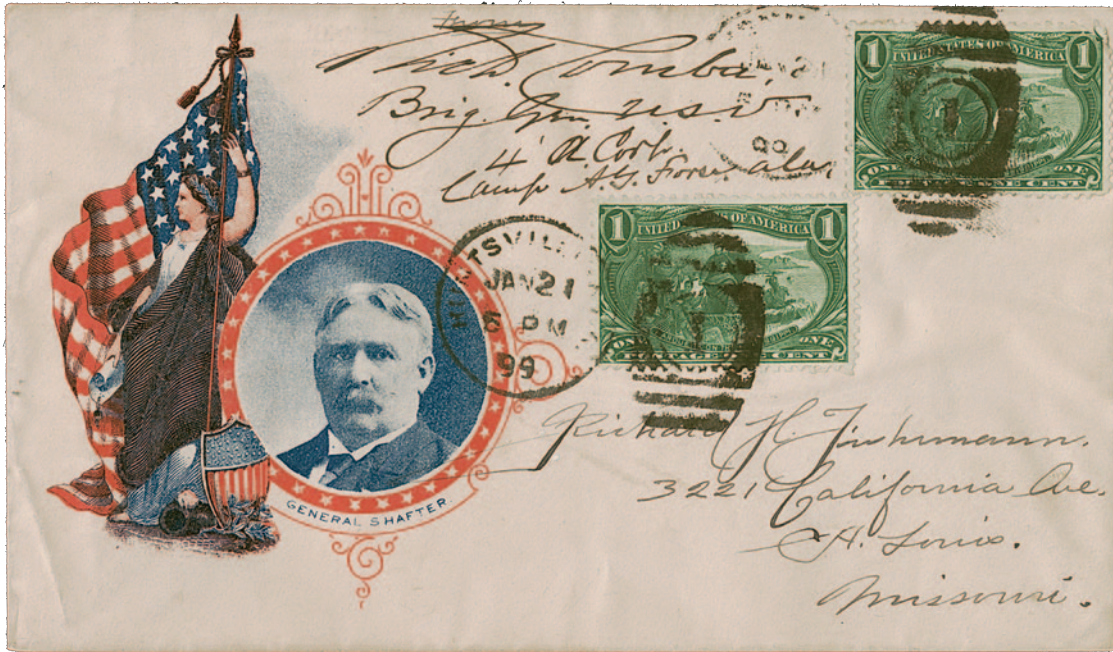 From
Rich Comba,
Brig. Gen. U.S.V
4 A Corp.
Camp A.G. Forse, Ala.
1 UNITED STATES OF AMERICA 1
ONE POSTAGE ONE CENT ONE
1 UNITED STATES OF AMERICA 1
ONE POSTAGE ONE CENT ONE
HUNTSVILLE
JAN 21
5 PM
99
GENERAL SHAFTER.
Richard H. Fuhrmann.
3221 California Ave.
St. Louis.
Missouri.